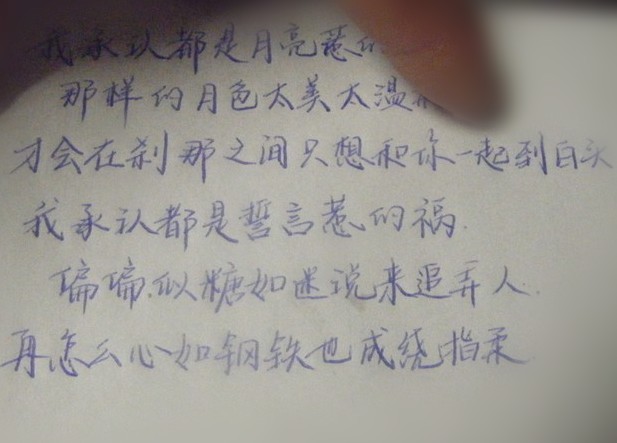 我承认都是月亮惹的
那样的月色太美太温
才会在刹那之间只想和你一起到白头
我承认都是誓言惹的祸.
偏偏.似糖如迷说来追弄人.
再怎么心如钢铁也成绕指柔